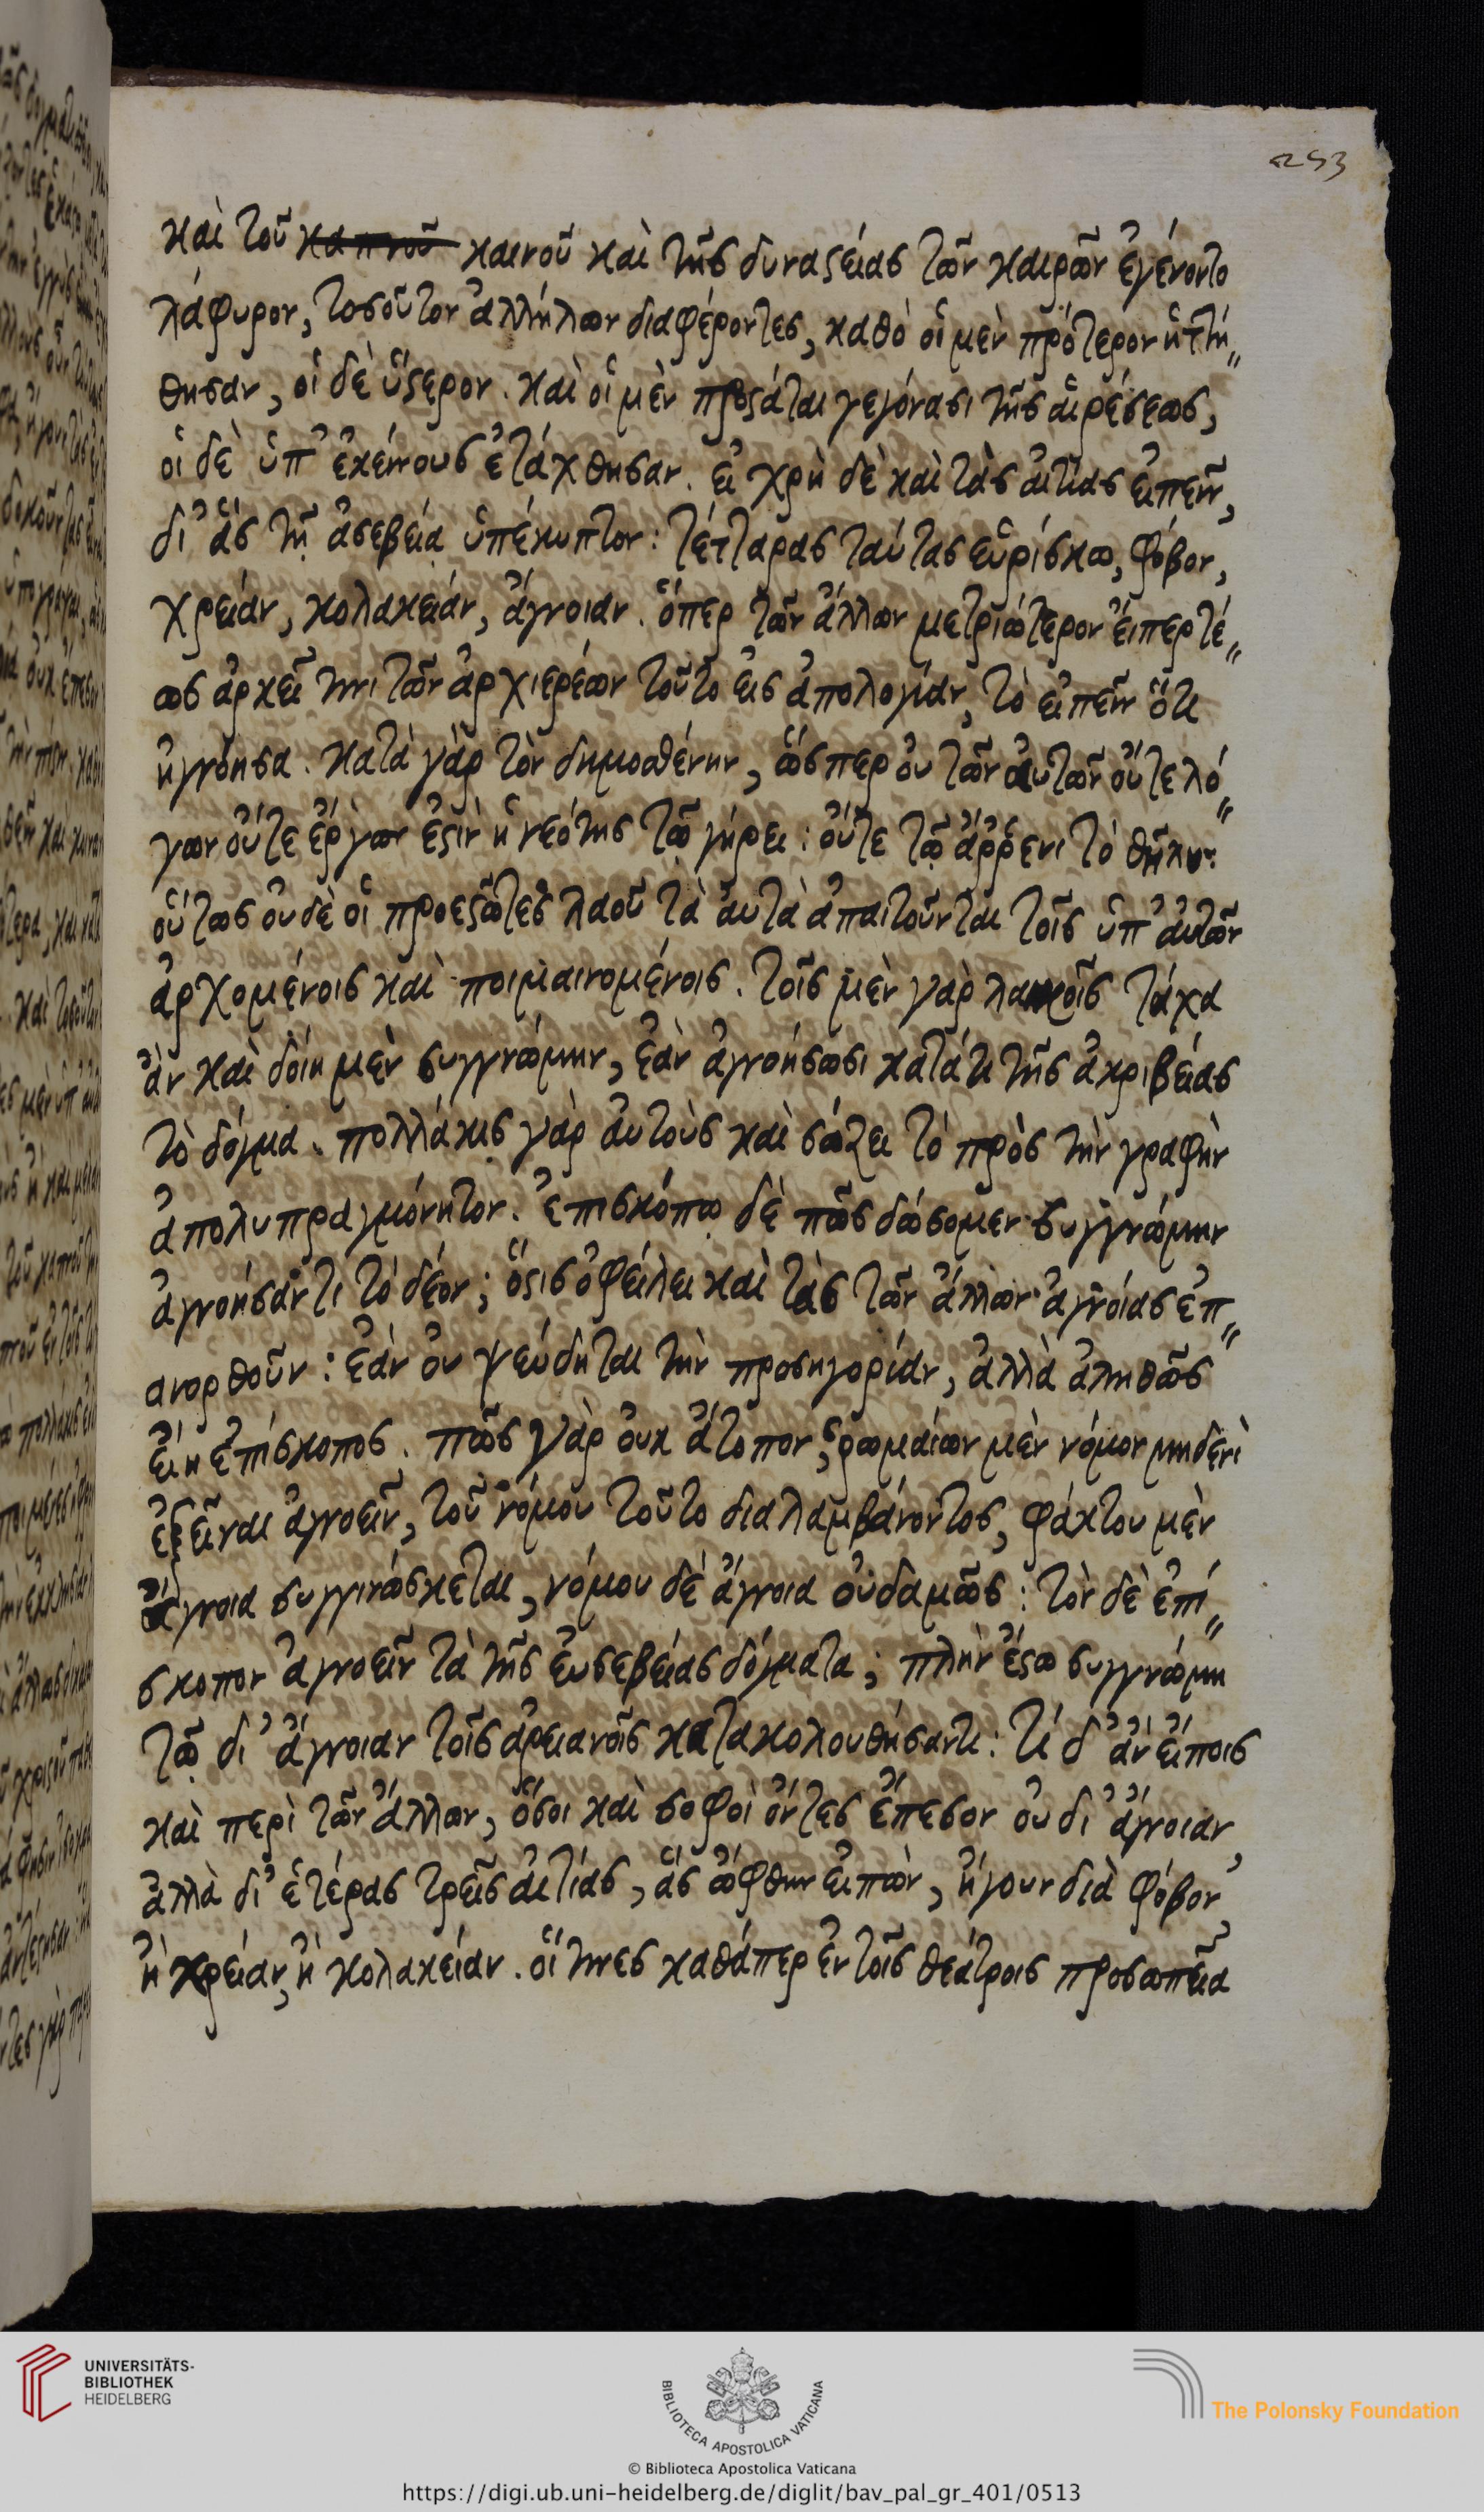 253
καὶ τοῦ καπνοῦ καινοῦ καὶ τῆς δυναστείας τῶν καιρῶν ἐγένοντο
λάφυρον, τοσοῦτον ἀλλήλων διαφέροντες, καθὸ οἱ μὲν πρότερον ἡττή〃
θησαν, οἱ δὲ ὕστερον. καὶ οἱ μὲν προστάται γεγόνασι τῆς αἱρέσεως,
οἱ δὲ ὑπ' ἐκείνους ἐτάχθησαν. εἰ χρὴ δὲ καὶ τὰς αἰτίας εἰπεῖν,
δι' ἃς τῇ ἀσεβείᾳ ὑπέκυπτον: τέτταρας ταύτας εὑρίσκω, φόβον,
χρείαν, κολακείαν, ἄγνοιαν. ὅπερ τῶν ἄλλων μετριώτερον εἴπερ τέ〃
ως ἀρκεῖ τινι τῶν ἀρχιερέων τοῦτο εἰς ἀπολογίαν, τὸ εἰπεῖν ὅτι
ἠγνόησα. κατὰ γὰρ τὸν δημοσθένην, ὥσπερ οὐ τῶν αὐτῶν οὔτε λό〃
γων οὔτε ἔργων ἐστὶν ἡ νεότης τῷ γήρει: οὔτε τῷ ἄῤῥενι τὸ θῆλυ:
οὕτως οὐδὲ οἱ προεστῶτες λαοῦ τὰ αὐτὰ ἀπαιτοῦνται τοῖς ὑπ' αὐτῶν
ἀρχομένοις καὶ ποιμαινομένοις. τοῖς μὲν γὰρ λαικοῖς τάχα
ἂν καὶ δοίη μὲν συγγνώμην, ἐὰν ἀγνοήσωσι κατά τι τῆς ἀκριβείας
τὸ δόγμα. πολλάκις γὰρ αὐτοὺς καὶ σώζει τὸ πρὸς τὴν γραφὴν
ἀπολυπραγμόνητον. ἐπισκόπῳ δὲ πῶς δώσομεν συγγνώμην
ἀγνοήσαντι τὸ δέον; ὅστις ὀφείλει καὶ τὰς τῶν ἄλλων ἀγνοίας ἐπ〃
ανορθοῦν: ἐὰν οὐ ψεύδηται τὴν προσηγορίαν, ἀλλὰ ἀληθῶς
εἴη ἐπίσκοπος. πῶς γὰρ οὐκ ἄτοπον, ῥωμαίων μὲν νόμον μηδενὶ
ἐξεῖναι ἀγνοεῖν, τοῦ νόμου τοῦτο διαλαμβάνοντος, φάκτου μὲν
ἄγνοια συγγινώσκεται, νόμου δὲ ἄγνοια οὐδαμῶς: τὸν δὲ ἐπί〃
σκοπον ἀγνοεῖν τὰ τῆς εὐσεβείας δόγματα; πλὴν ἔστω συγγνώμη
τῷ δι' ἄγνοιαν τοῖς ἀρειανοῖς κατακολουθήσαντι: τί δ' ἂν εἴποις
καὶ περὶ τῶν ἄλλων, ὅσοι καὶ σοφοὶ ὄντες ἔπεσον οὐ δι' ἄγνοιαν,
ἀλλὰ δι' ἑτέρας τρεῖς αἰτίας, ἃς ὤφθην εἰπὼν, ἤγουν διὰ φόβον,
ἢ χρείαν, ἢ κολακείαν. οἵτινες καθάπερ ἐν τοῖς θεάτροις προσωπεῖα
UNIVERSITÄTS-
BIBLIOTHEK
HEIDELBERG
BIBLIOTECA APOSTOLICA VATICANA
The Polonsky Foundation
© Biblioteca Apostolica Vaticana
https://digi.ub.uni-heidelberg.de/diglit/bav_pal_gr_401/0513